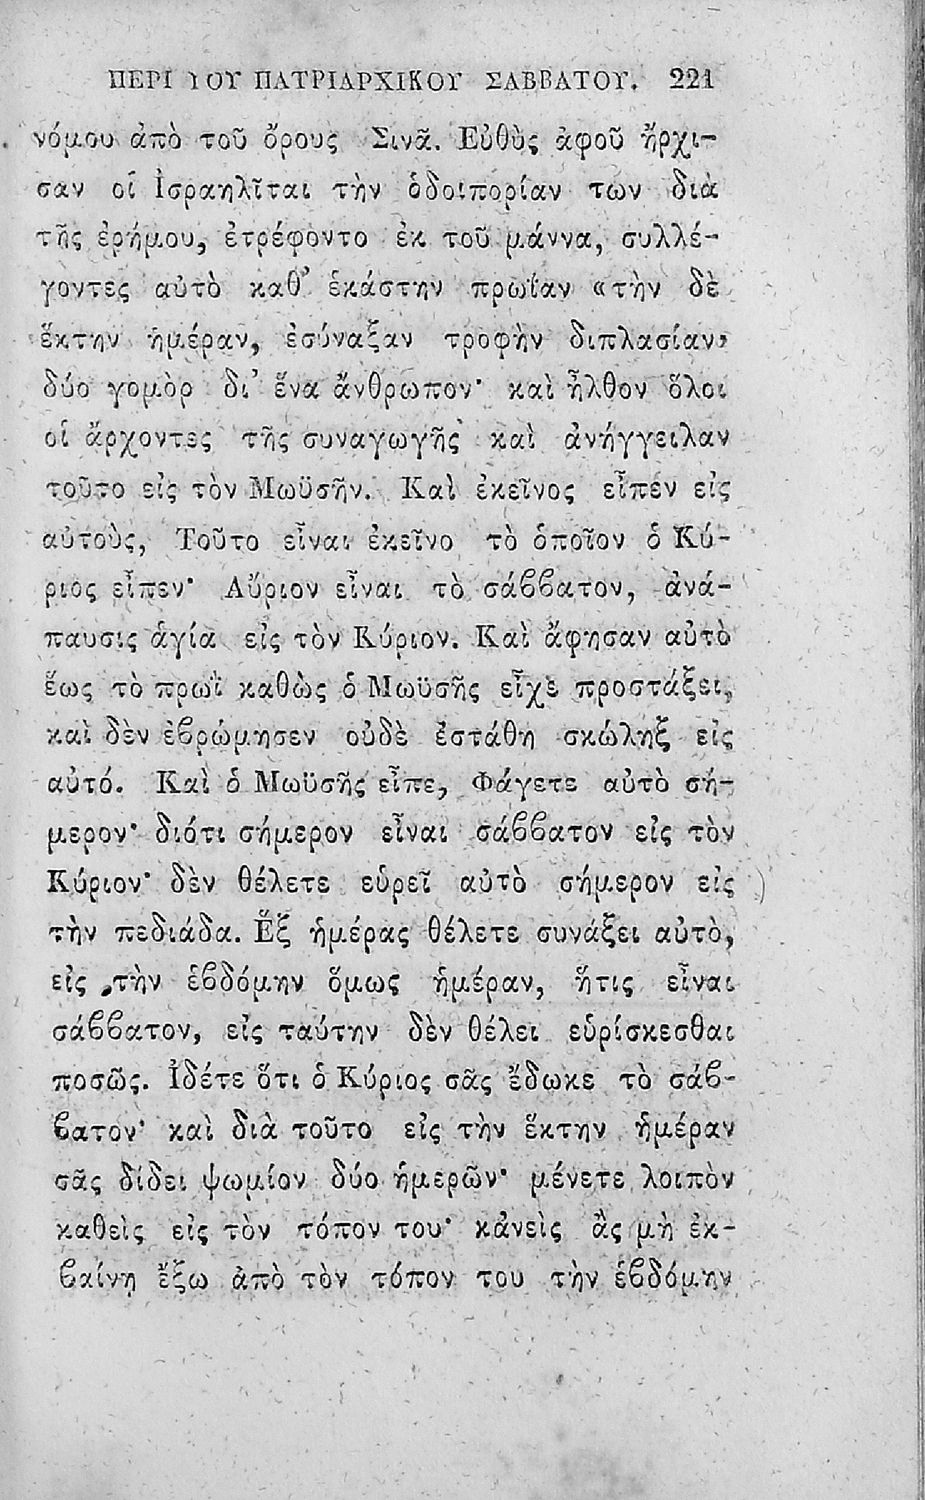 ΠΕΡΙ ΤΟΥ ΠΑΤΡΙΑΡΧΙΚΟΥ ΣΑΒΒΑΤΟΥ. 221
νόμου ἀπὸ τοῦ ὄρους Σινᾶ. Εὐθὺς ἀφοῦ ἤρχι-
σαν οἱ Ἰσραηλῖται τὴν ὁδοιπορίαν των διὰ
τῆς ἐρήμου, ἐτρέφοντο ἐκ τοῦ μάννα, συλλέ-
γοντες αὐτὸ καθ’ ἑκάστην πρωΐαν «τὴν δὲ
ἕκτην ἡμέραν, ἐσύναξαν τροφὴν διπλασίαν,
δύο γομὸρ δι’ ἕνα ἄνθρωπον· καὶ ἦλθον ὅλοι
οἱ ἄρχοντες τῆς συναγωγῆς καὶ ἀνήγγειλαν
τοῦτο εἰς τὸν Μωϋσῆν. Καὶ ἐκεῖνος εἶπεν εἰς
αὐτοὺς, Τοῦτο εἶναι ἐκεῖνο τὸ ὁποῖον ὁ Κύ-
ριος εἶπεν· Αὔριον εἶναι τὸ σάββατον, ἀνά-
παυσις ἁγία εἰς τὸν Κύριον. Καὶ ἄφησαν αὐτὸ
ἕως τὸ πρωῒ καθὼς ὁ Μωϋσῆς εἶχε προστάξει,
καὶ δὲν ἐβρώμησεν οὐδὲ ἐστάθη σκώληξ εἰς
αὐτό. Καὶ ὁ Μωϋσῆς εἶπε, Φάγετε αὐτὸ σή-
μερον· διότι σήμερον εἶναι σάββατον εἰς τὸν
Κύριον· δὲν θέλετε εὑρεῖ αὐτὸ σήμερον εἰς
τὴν πεδιάδα. Ἓξ ἡμέρας θέλετε συνάξει αὐτὸ,
εἰς τὴν ἑβδόμην ὅμως ἡμέραν, ἥτις εἶναι
σάββατον, εἰς ταύτην δὲν θέλει εὑρίσκεσθαι
ποσῶς. Ἰδέτε ὅτι ὁ Κύριος σᾶς ἔδωκε τὸ σάβ-
βατον· καὶ διὰ τοῦτο εἰς τὴν ἕκτην ἡμέραν
σᾶς δίδει ψωμίον δύο ἡμερῶν· μένετε λοιπὸν
καθεὶς εἰς τὸν τόπον του· κἀνεὶς ἂς μὴ ἐκ-
βαίνῃ ἔξω ἀπὸ τὸν τόπον του τὴν ἑβδόμην